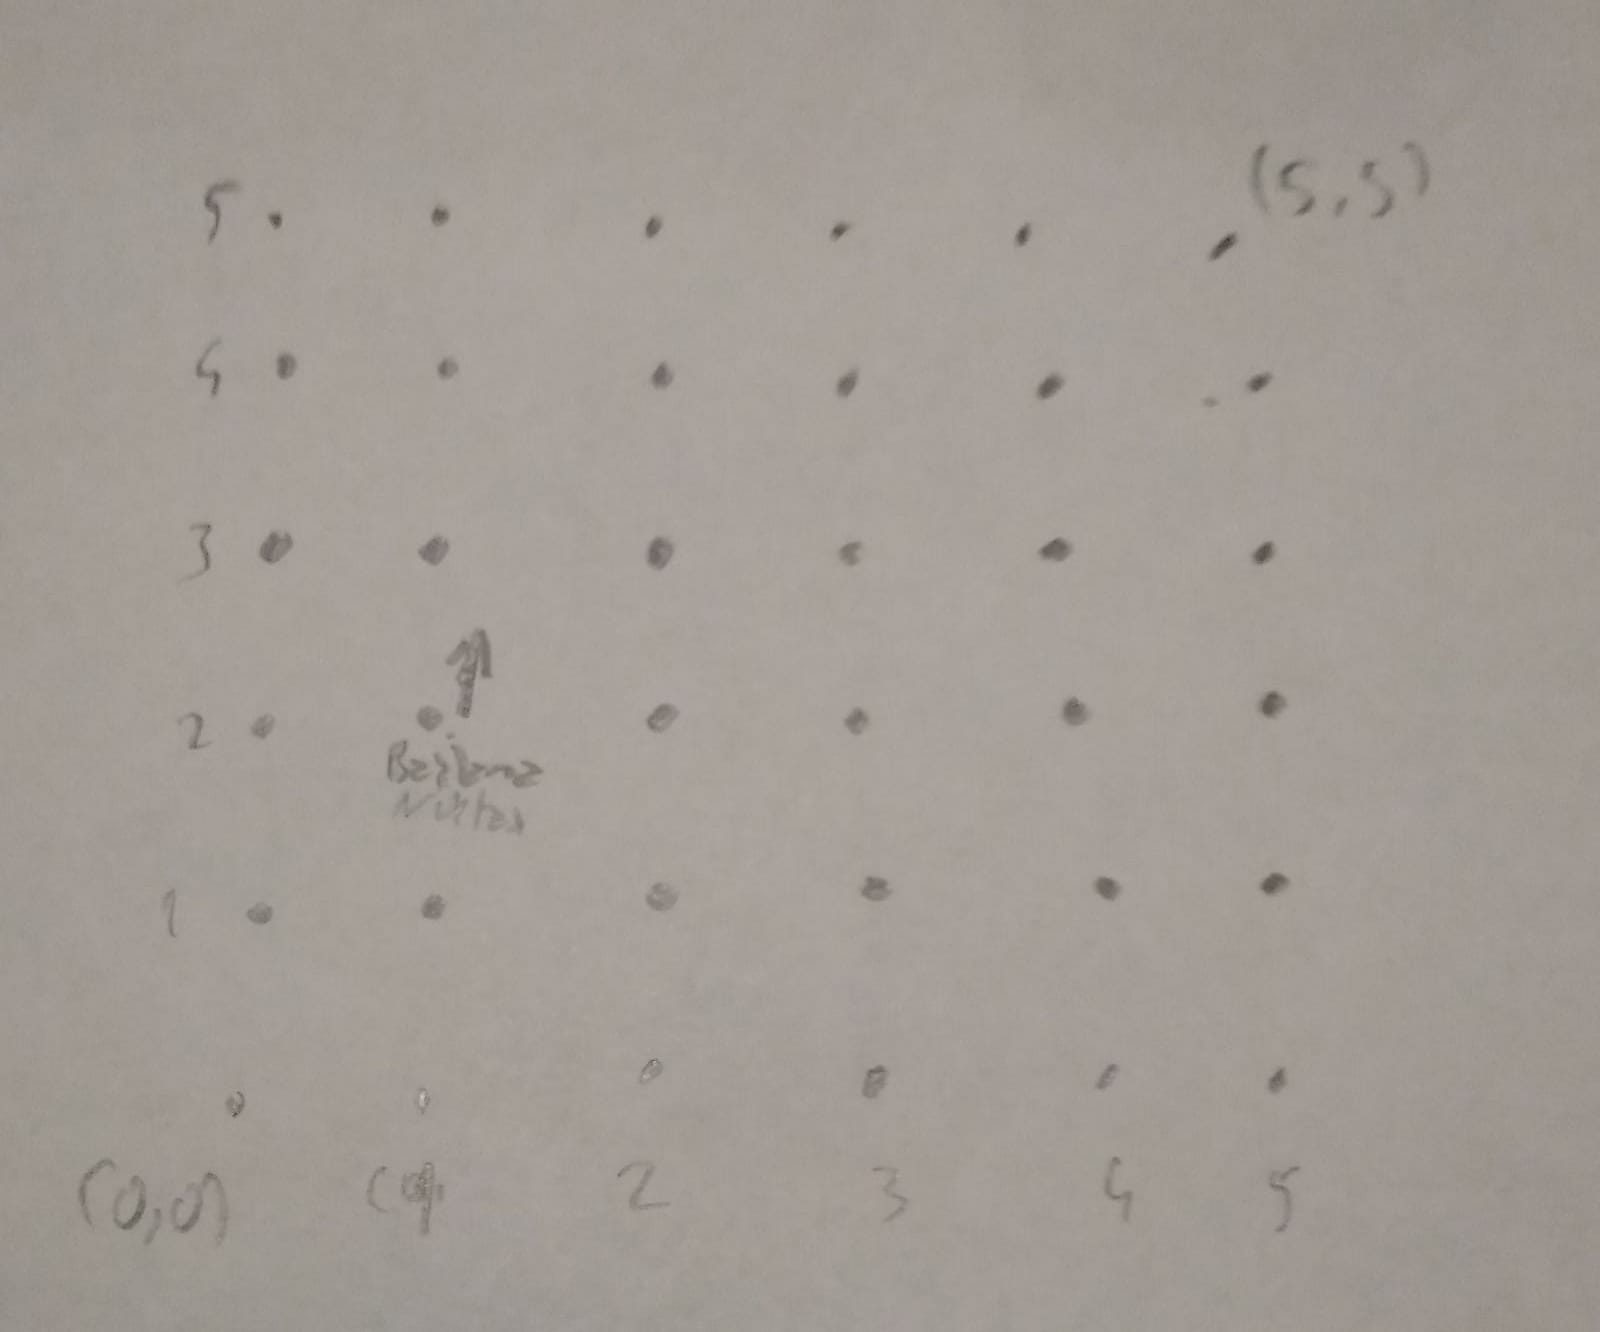 (5,5)
5
4
3
2
Başlama
Noktası
1
(0,0) 2 3 4 5